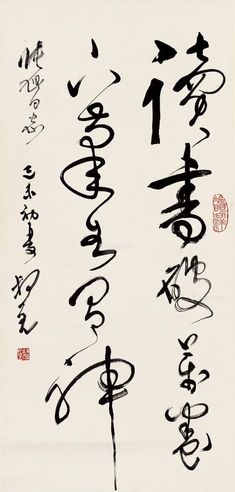 讀書破萬卷
下筆如有神
同志
己未初夏